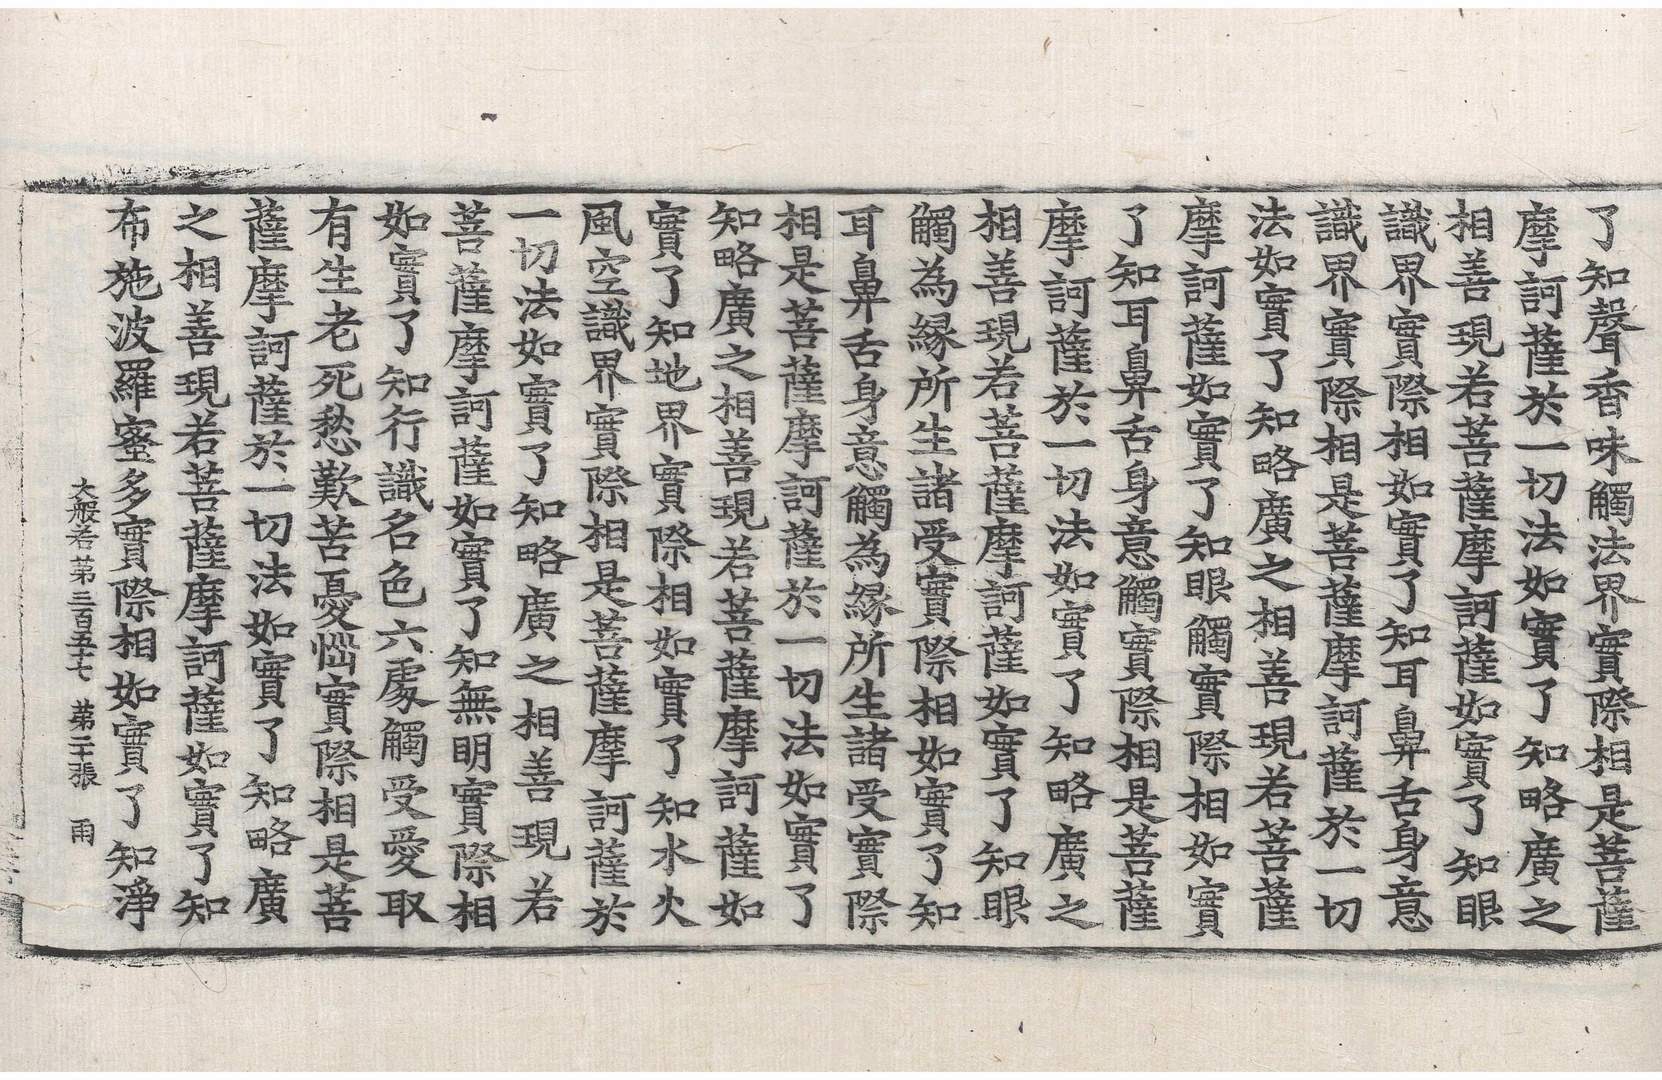 了知聲香味觸法界實際相是菩薩
摩訶薩於一切法如實了知略廣之
相善現若菩薩摩訶薩如實了知眼
識界實際相如實了知耳鼻舌身意
識界實際相是菩薩摩訶薩於一切
法如實了知略廣之相善現若菩薩
摩訶薩如實了知眼觸實際相如實
了知耳鼻舌身意觸實際相是菩薩
摩訶薩於一切法如實了知略廣之
相善現若菩薩摩訶薩如實了知眼
觸為緣所生諸受實際相如實了知
耳鼻舌身意觸為緣所生諸受實際
相是菩薩摩訶薩於一切法如實了
知略廣之相善現若菩薩摩訶薩如
實了知地界實際相如實了知水火
風空識界實際相是菩薩摩訶薩於
一切法如實了知略廣之相善現若
菩薩摩訶薩如實了知無明實際相
如實了知行識名色六處觸受愛取
有生老死愁歎苦憂惱實際相是菩
薩摩訶薩於一切法如實了知略廣
之相善現若菩薩摩訶薩如實了知
布施波羅蜜多實際相如實了知淨
大般若第三百五十七 第二十張 雨